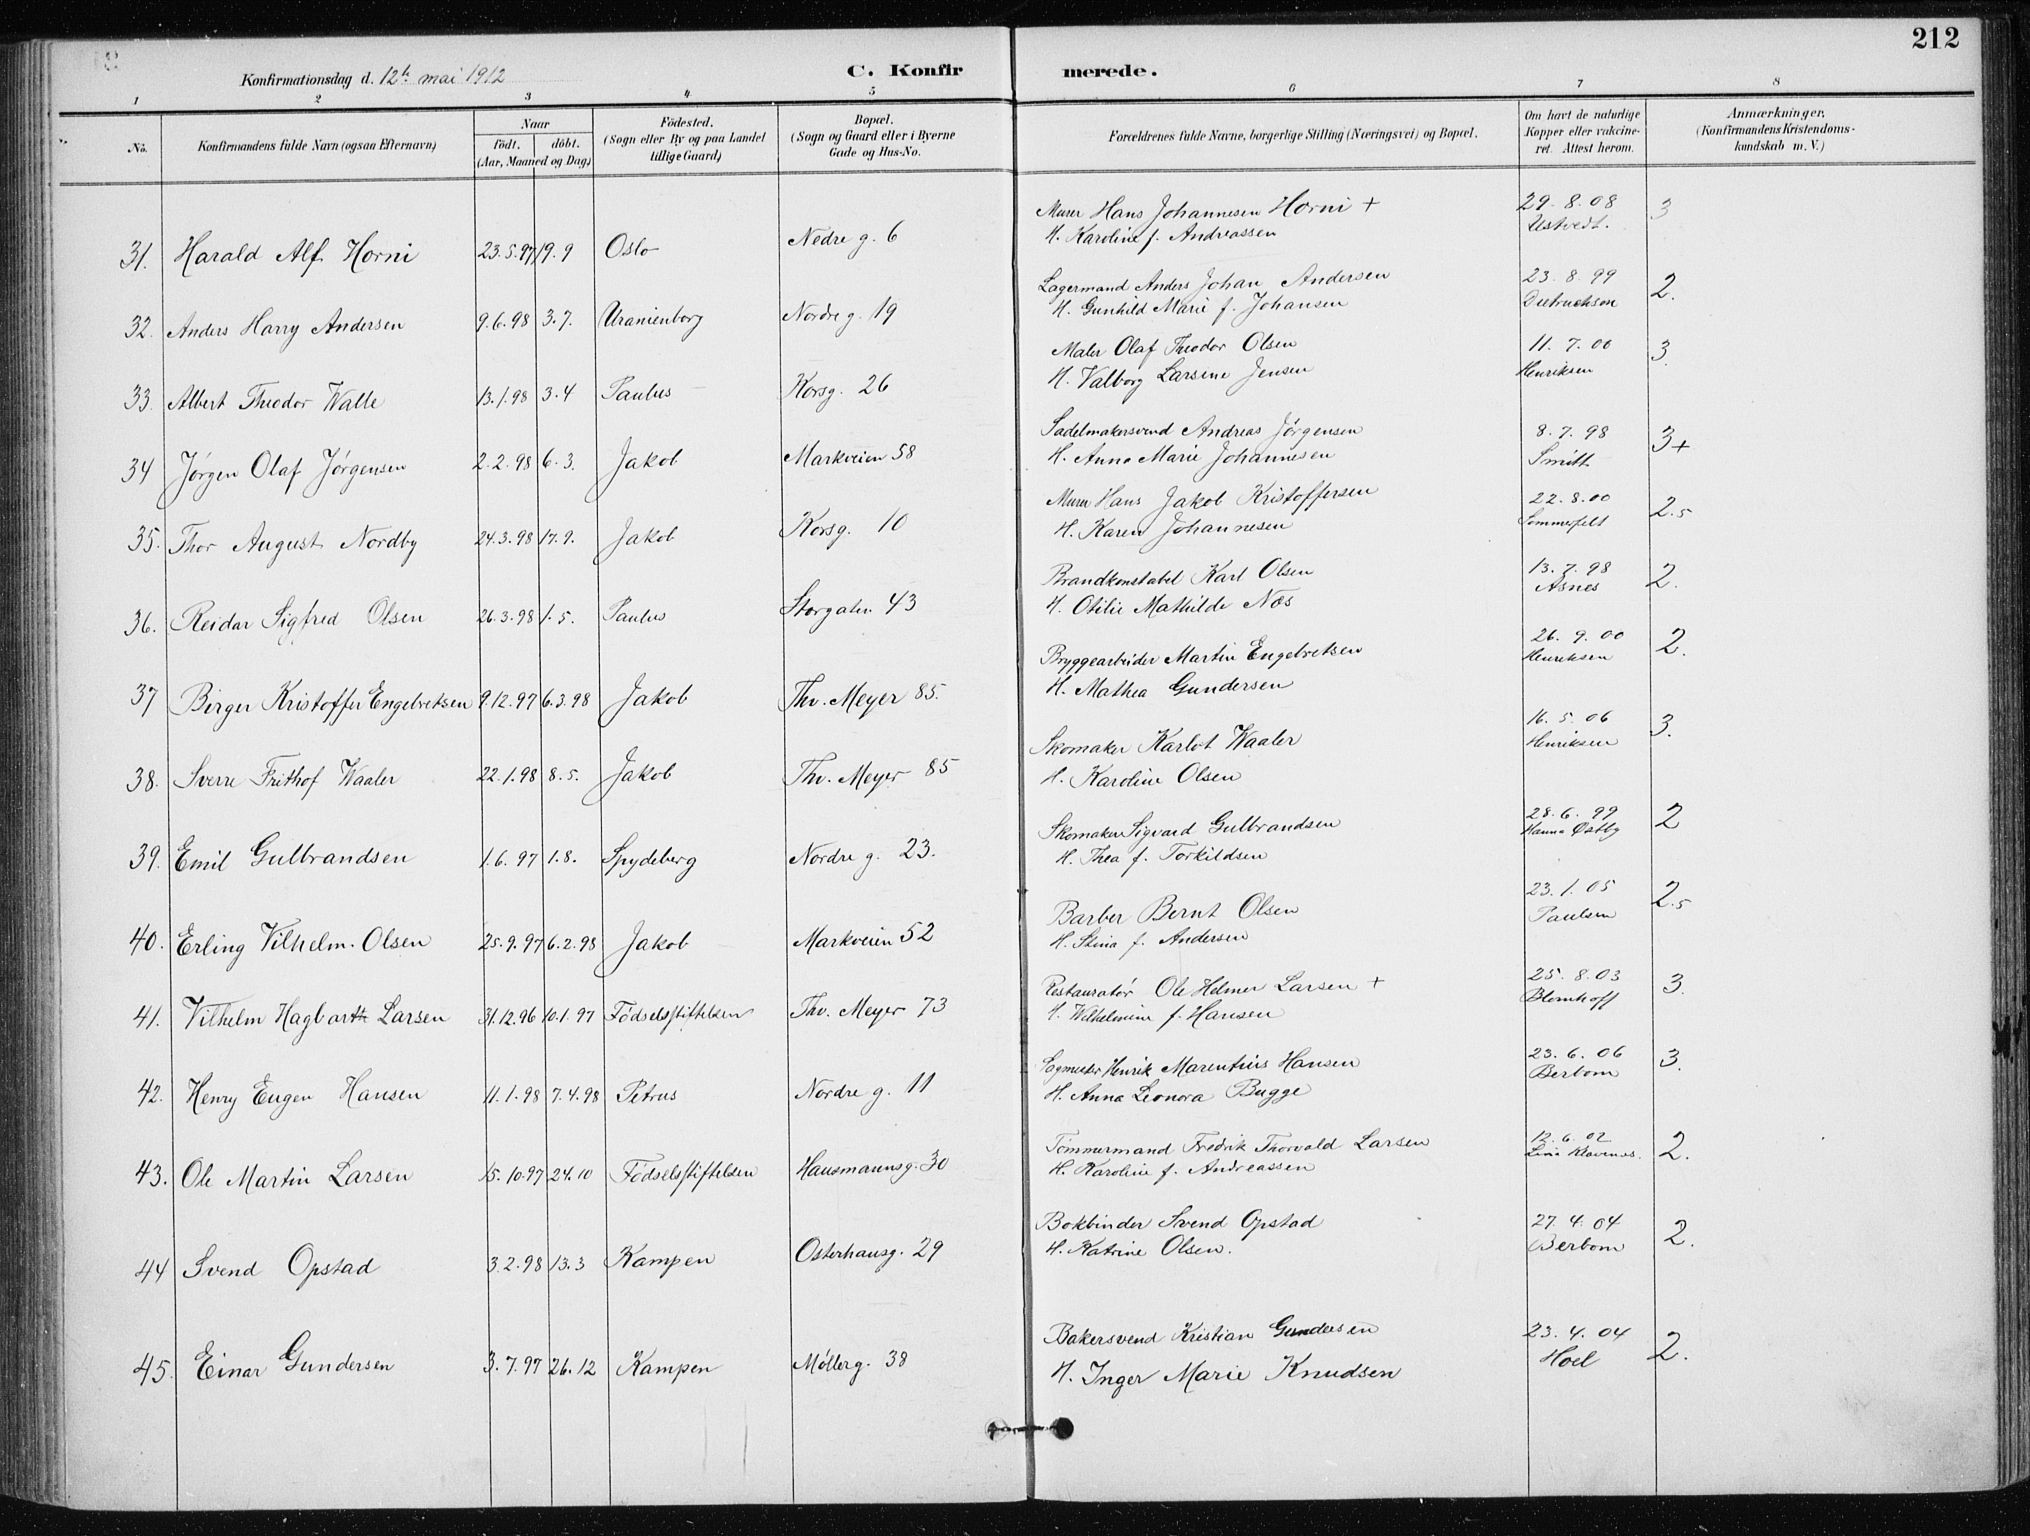 212
Konfirmationsdag d. 12te mai 1912
C. Konfirmerede.
1 2 3 4 5 6 7 8
No. Konfirmandens fulde Navn (ogsaa Efternavn) Naar födt. döbt. (Aar, Maaned og Dag) Födested. (Sogn eller By og paa Landet tillige Gaard) Bopæl. (Sogn og Gaard eller i Byerne Gade og Hus-No. Forældrenes fulde Navne, borgerlige Stilling (Næringsvei) og Bopæl. Om havt de naturlige Kopper eller vakcineret. Attest herom. Anmærkninger, (Konfirmandens Kristendomskundskab m. V.)
31. Harald Alf Horni 23.5.97 19.9 Oslo Nedre g. 6 Murer Hans Johannesen Horni + 29.8.08 3
H. Karoline f. Andreassen Ustvedt.
32. Anders Harry Andersen 9.6.98 3.7. Uranienborg Nordre g. 19 Lagermand Anders Johan Andersen 23.8.99 2.
H. Gunhild Marie f. Johansen
33. Albert Theodor Walle 13.1.98 3.4 Paulus Korsg. 26 Maler Olaf Theodor Olsen 11.7.00 3.
H. Valborg Larsine Jensen Henriksen
34 Jørgen Olaf Jørgensen 2.2.98 6.3. Jakob Markveien 58 Sadelmakersvend Andreas Jørgensen 8.7.98 3+
H. Anna Marie Johannesen Smitt
35. Thor August Nordby 24.3.98 17.9. Jakob Korsg. 10 Murer Hans Jakob Kristoffersen 22.8.00 2.5
H. Karen Johannesen Sommerfelt
36. Reidar Sigfred Olsen 26.3.98 1.5. Paulus Storgaten 43 Brandkonstabel Karl Olsen 13.7.98 2.
H. Otilie Mathilde Næs Asnes
37 Birger Kristoffer Engebretsen 9.12.97 6.3.98 Jakob Thv. Meyer 85. Bryggearbeider Martin Engebretsen 26.9.00 2.
H. Mathea Gundersen Henriksen
38. Sverre Frithof Waaler 22.1.98 8.5. Jakob Thv. Meyer 85 Skomaker Karlot Waaler 16.5.06 3.
H. Karoline Olsen Henriksen
39. Emil Gulbrandsen 1.6.97 1.8. Spydeberg Nordre g. 23. Skomaker Sigvard Gulbrandsen 28.6.99 2
H. Thea f. Torkildsen Hanna Østby
40. Erling Vilhelm. Olsen 25.9.97 6.2.98 Jakob Markveien 52 Barber Bernt Olsen 23.1.05 2.5
H. Stina f. Andersen Paulsen
41. Vilhelm Hagbarth Larsen 31.12.96 10.1.97 Födselsstiftelsen Thv. Meyer 73 Restauratør Ole Helmer Larsen + 25.8.03 3.
H. Wilhelmine f. Hansen Blomhoff
42. Henry Eugen Hansen 11.1.98 7.4.98 Petrus Nordre g. 11 Sagmester Henrik Marentius Hansen 23.6.06 3.
H. Anna Leonora Bugge Berbom
43. Ole Martin Larsen 15.10.97 24.10 Födselsstiftelsen Hausmannsg. 30 Tömmermand Fredrik Thorvald Larsen 12.6.02 2.
H. Karoline f. Andreassen
44 Svend Opstad 3.2.98 13.3 Kampen Osterhausg. 29 Bokbinder Svend Opstad 27.4.04 2.
H. Katrine Olsen. Berbom
45. Einar Gundersen 3.7.97 26.12 Kampen Møllerg. 38 Bakersvend Kristian Gundersen 23.4.04 2.
H. Inger Marie Knudsen Hoel